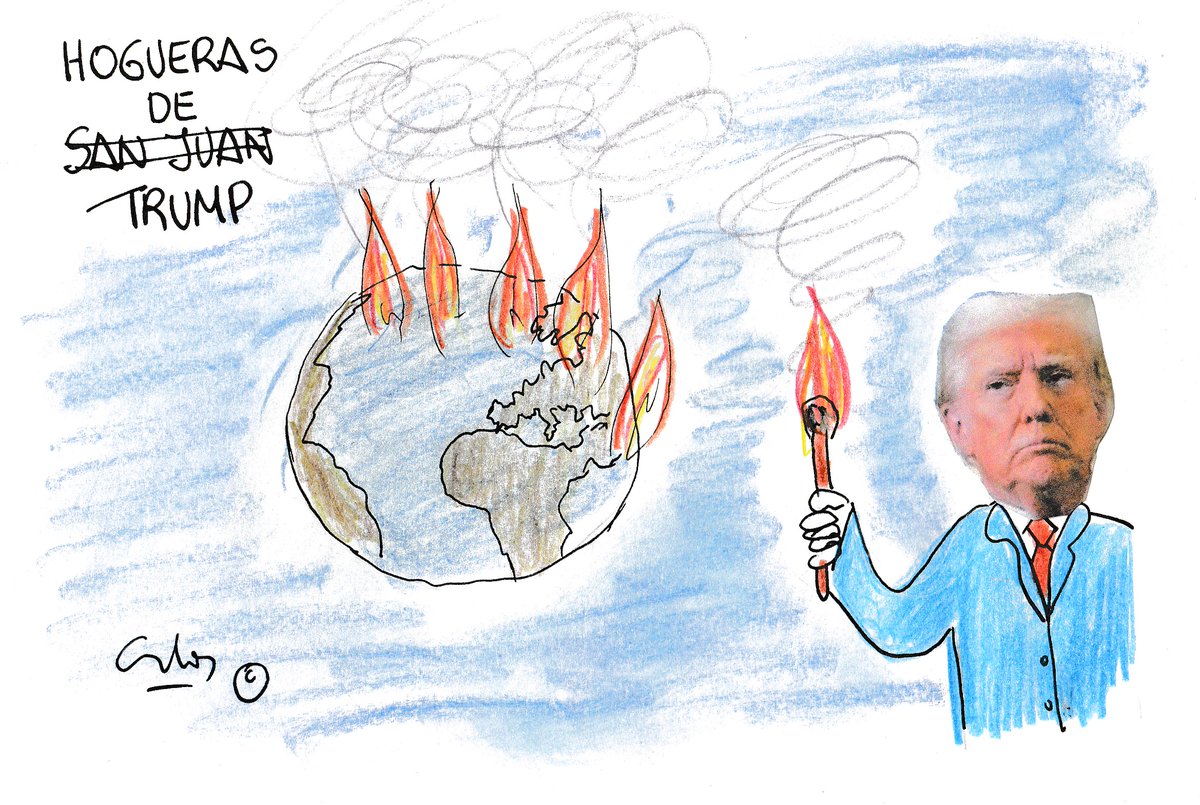 HOGUERAS
DE
SAN JUAN
TRUMP
©